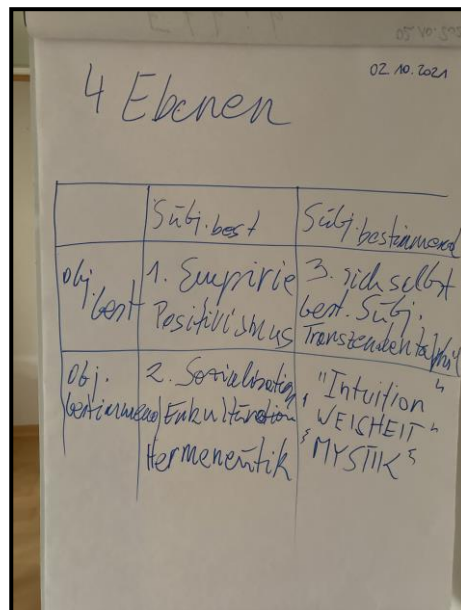 02.10.2021
4 Ebenen
Subj.best
Subj.bestimmend
obj.
best
1. Empirie
Positivismus
3. sich selbst
best. Subj.
Obj.
bestimmend
2. Sozialisation
/Enkulturation
Hermeneutik
"Intuition"
"WEISHEIT"
"MYSTIK"